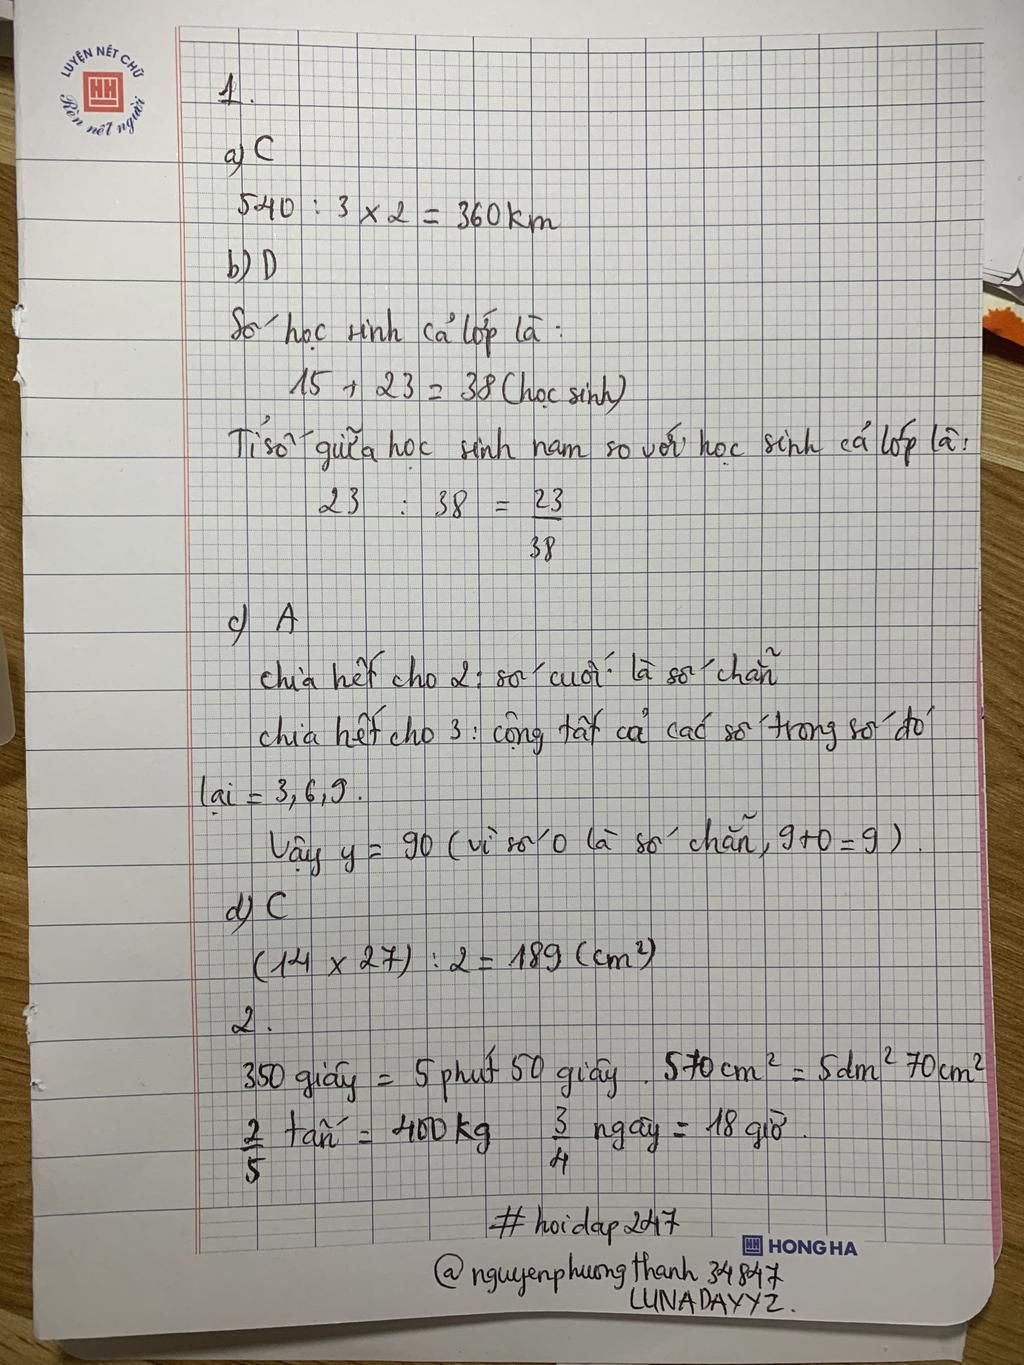 LUYỆN NÉT CHỮ
HH
Rèn nết người
1.
a) C
540 : 3 x 2 = 360km
b) D
Số học sinh cả lớp là:
15 + 23 = 38 (học sinh)
Tỉ số giữa học sinh nam so với học sinh cả lớp là:
23 : 38 = 23/38
c) A
chia hết cho 2: số cuối là số chẵn
chia hết cho 3: cộng tất cả các số trong số đó
lại = 3, 6, 9.
Vậy y = 90 (vì số 0 là số chẵn, 9+0=9).
d) C
(14 x 27) : 2 = 189 (cm²)
2.
350 giây = 5 phút 50 giây. 570cm² = 5dm² 70cm²
2/5 tấn = 400kg 3/4 ngày = 18 giờ.
#hoidap247
HH HONG HA
@nguyenphuongthanh34847
LUNADAYYZ.